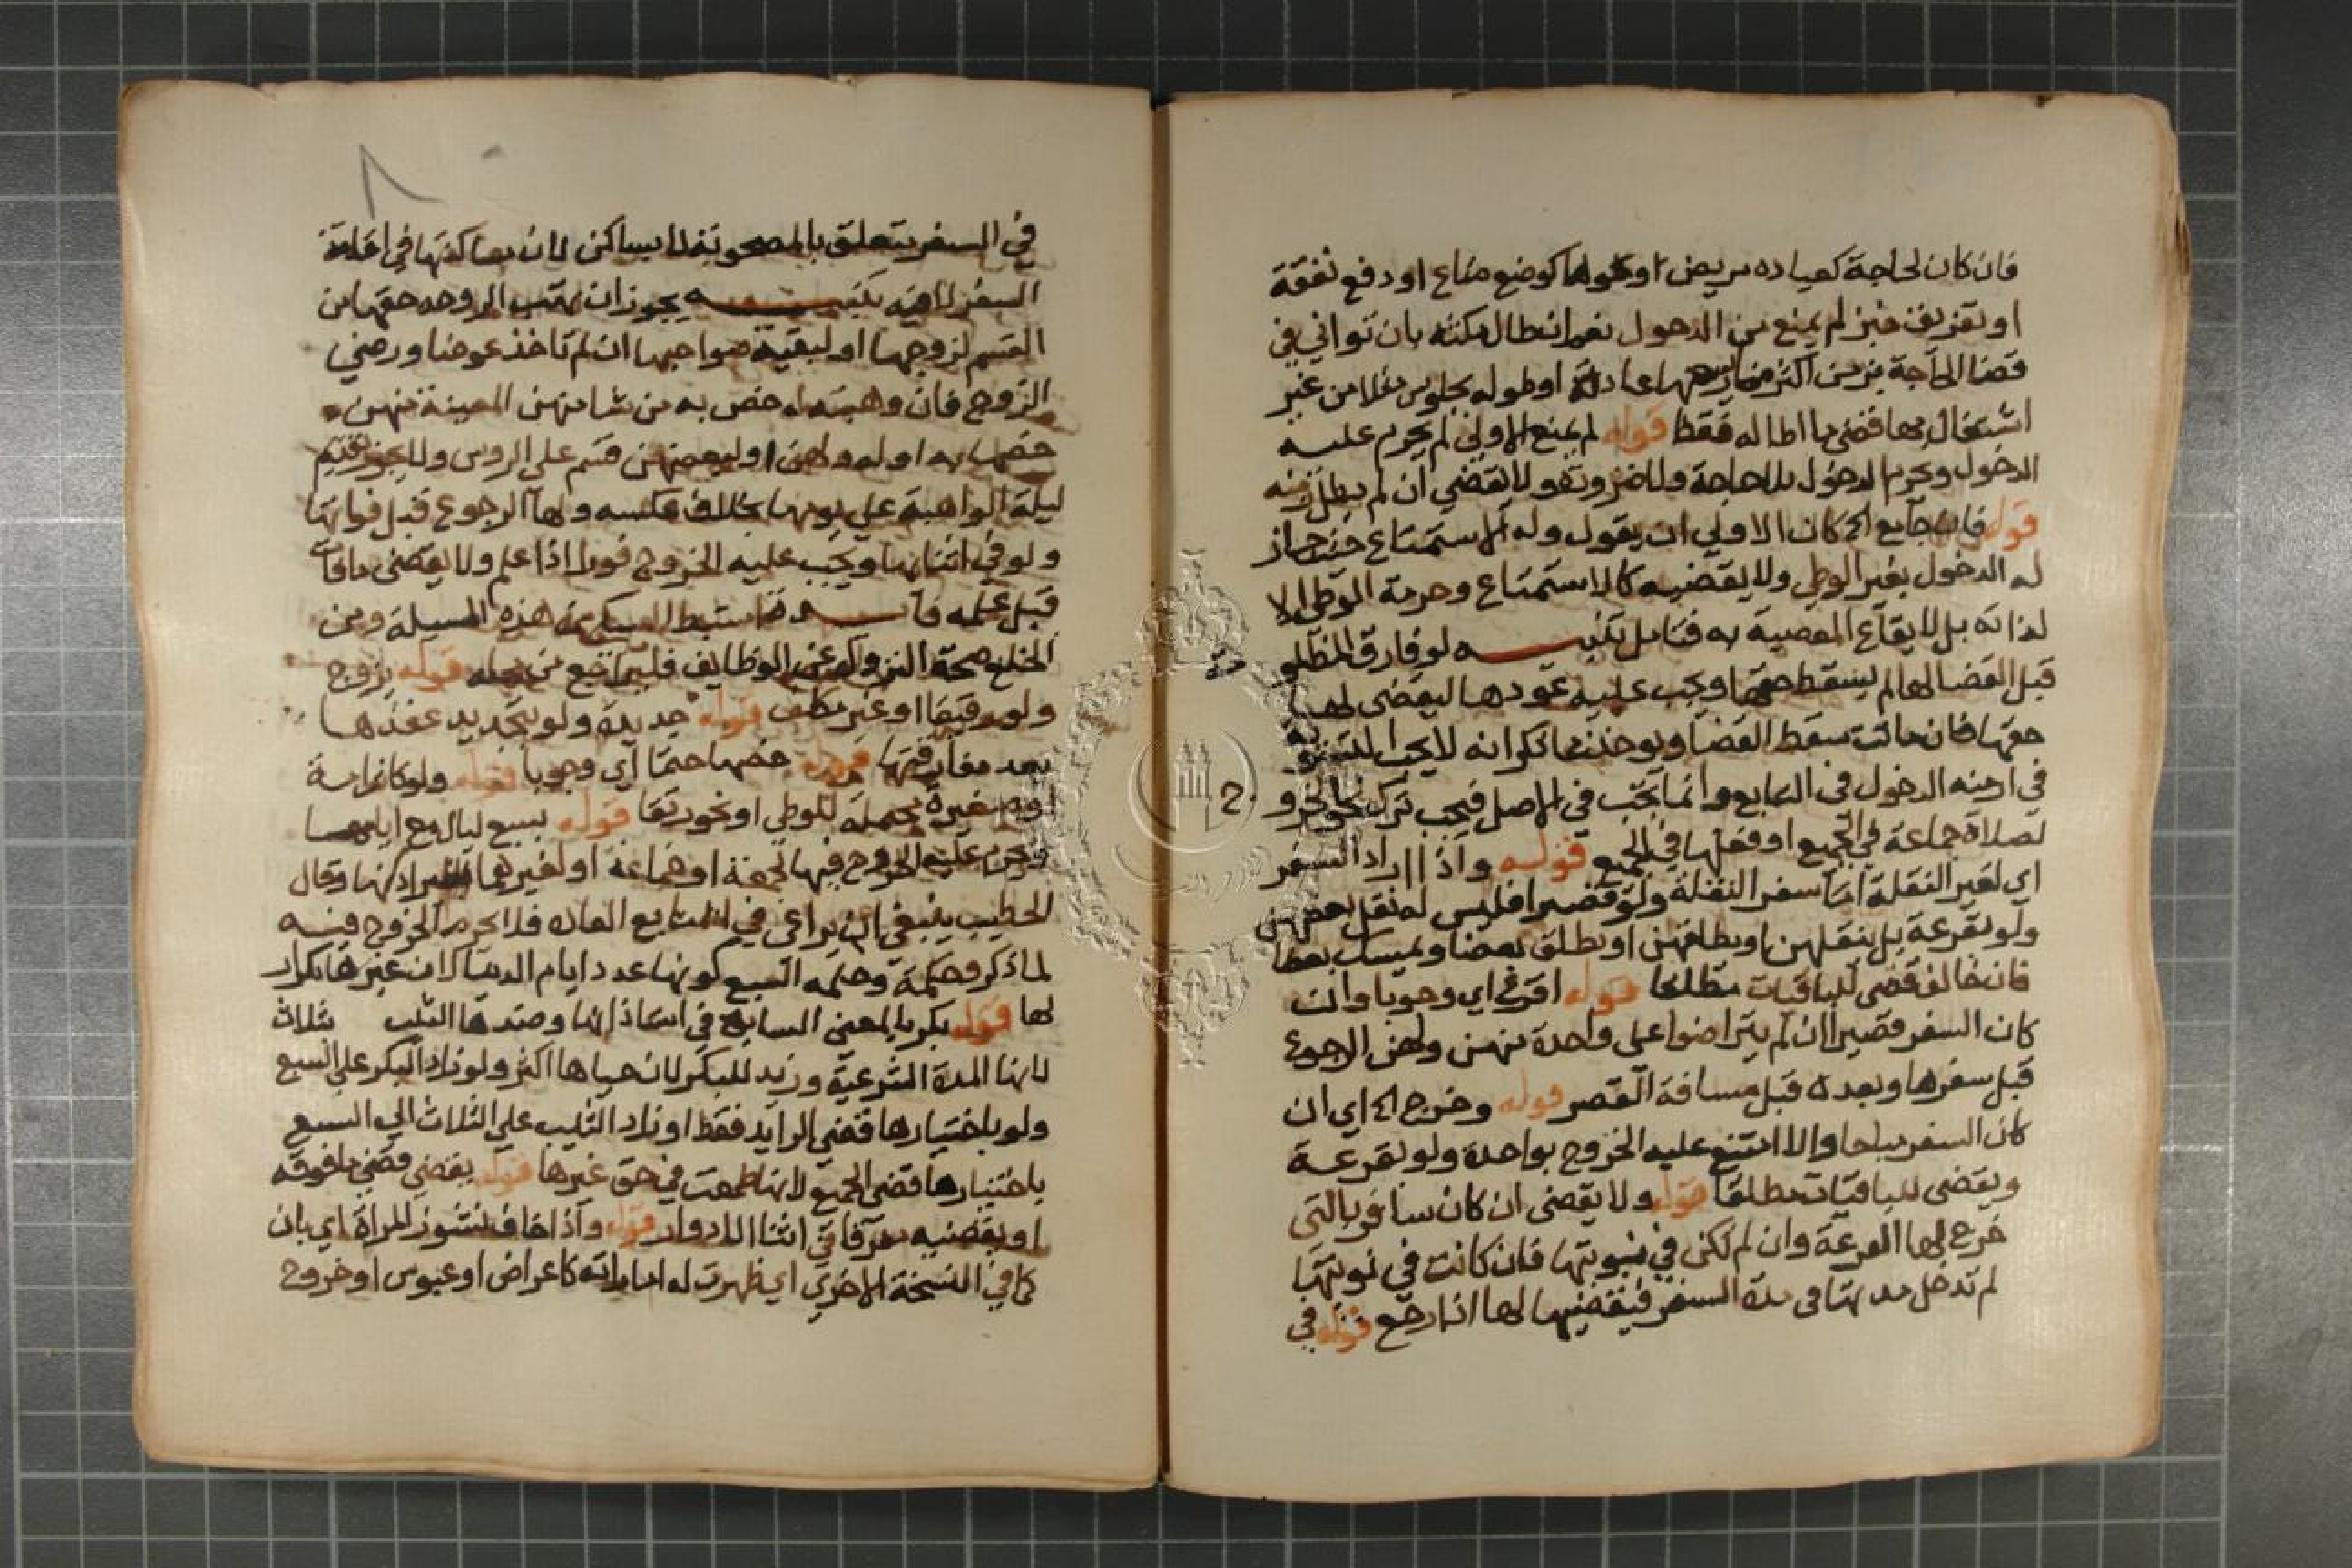 فان كان لحاجة كعيادة مريض او نحوها كوضع متاع او دفع نفقة
او تعريف خبز لم يمنع من الدخول نعم ان طال مكثه بان تواني في
قضا الحاجة بزمن اكثر مما يسعها عادة او طوله بجلوس مثلا من غير
اشتغال بها قضي ما اطاله فقط قوله لم يمنع الاولي لم يحرم عليه
الدخول ويحرم الدخول بلا حاجة ولا ضرورة ولا يقضي ان لم يطل زمنه
قوله فان جامع الخ كان الاولي ان يقول وله الاستمتاع حيث جاز
له الدخول بغير الوطي ولا يقضيه كالاستمتاع وحرمة الوطي لا
لذاته بل لايقاع المعصية به فتامل تنبيه لو فارق المظلومة
قبل القضا لها لم يسقط حقها ويجب عليه عودها ليقضي لها
حقها فان ماتت سقط القضا ويوخذ مما ذكر انه لا يجب التسوية
في ازمنة الدخول في التابع وانما تجب في الاصل فيجب ترك نحو الخرو
لصلاة جماعة في الجميع او فعلها في الجميع قوله واذا اراد السفر
اي لغير النقلة اما سفر النقلة ولو قصيرا فليس له نقل بعضهن
ولو بقرعة بل ينقلهن او يطلقهن او يطلق بعضا ويمسك بعضا
فان خالف قضي للباقيات مطلقا قوله اقرع اي وجوبا وان
كان السفر قصيرا ان لم يتراضوا على واحدة منهن ولهن الرجوع
قبل سفرها وبعده قبل مسافة القصر قوله وخرج الخ اي ان
كان السفر مباحا والا امتنع عليه الخروج بواحدة ولو بقرعة
ويقضي للباقيات مطلقا قوله ولا يقضي ان كان سافر بالتي
خرج لها القرعة وان لم تكن في نوبتها فان كانت في نوبتها
لم تدخل مدتها في مدة السفر فيقضيها لها اذا رجع قوله في
في السفر يتعلق بالمصحوبة لا يساكن لان مساكنتها في اقامة
السفر لاهية تنبيه يجوز ان تهب الزوجة حقها من
القسم لزوجها او لبقية صواحبها ان لم تاخذ عوضا ورضي
الزوج فان وهبته له خص به من شا منهن المعينة منهن
خصها به او له ولهن او لبعضهن قسم على الروس ولا يجوز تقديم
ليلة الواهبة على يومها بخلاف عكسه ولها الرجوع قبل فواتها
ولو في اثنائها ويجب عليه الخروج فورا اذا علم ولا يقضي ما فات
قبل علمه فائدة استنبط السبكي من هذه المسيلة ومن
الخلع صحة النزول عن الوظايف فليراجع من محله قوله تزوج
ولو رقيقا او غير مكلف قوله جديدة ولو بتجديد عقدها
بعد مفارقتها قوله خصها حتما اي وجوبا قوله ولو كانت امة
او صغيرة محتملة للوطي او نحو رتقا قوله بسبع ليال مع ايامها
ويحرم عليه الخروج فيها لجمعة او جماعة او لغيرهما بغير اذنها وقال
الخطيب ينبغي ان يراعي في التتابع العادة فلا يحرم الخروج فيه
لما ذكر وحكمة السبع كونها عدد ايام الدنيا لان غيرها تكرار
لها قوله بكر بالمعنى السابق في استئذانها وضدها الثيب ثلاث
لانها المدة الشرعية وزيد للبكر لان حياها اكثر ولو زاد البكر على السبع
ولو باختيارها قضي الزايد فقط او زاد الثيب على الثلاث الي السبع
باختيارها قضي الجميع لانها طمعت في حق غيرها قوله يقضي قضي ما فوقه
او يقضيه متفرقا في اثنا الادوار قوله واذا خاف نشوز المراة اي بان
كما في النسخة الاخري اي ظهرت له اماراته كاعراض او عبوس او خروج